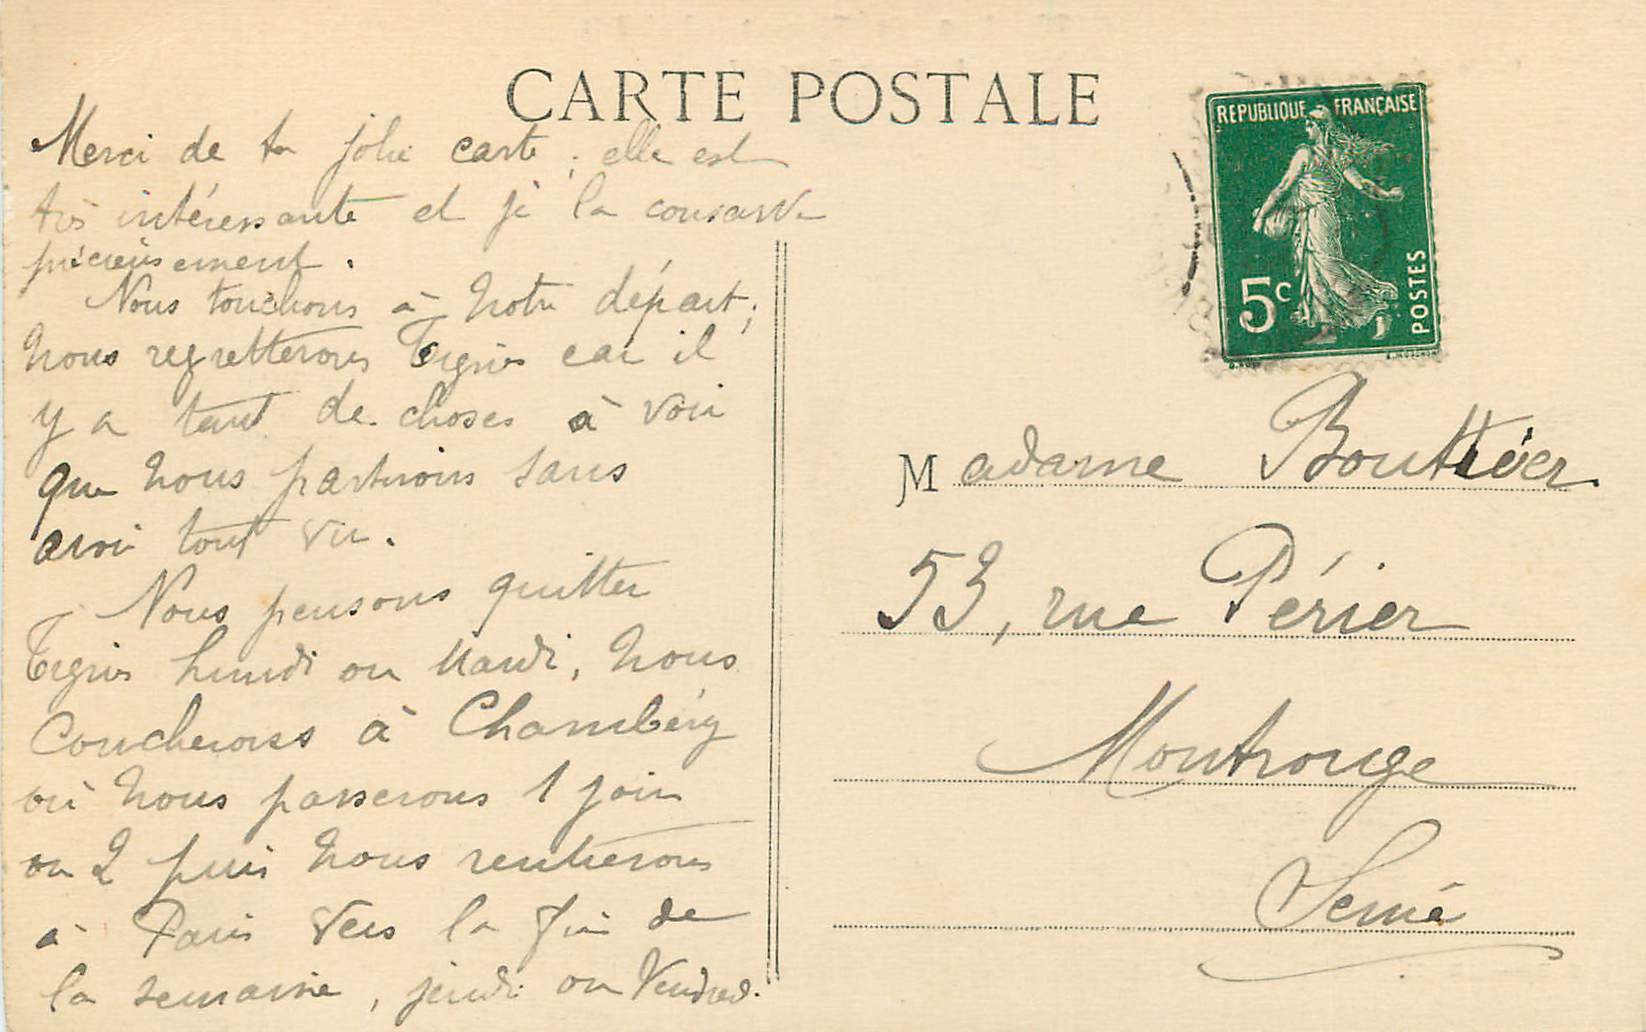 CARTE POSTALE
Merci de ta jolie carte ; elle est
très intéressante et je la conserve
précieusement.
Nous touchons à notre départ ;
nous regretterons car il
y a tant de choses à voir
que nous partirons sans
avoir tout vu.
Nous pensons quitter
Lundi ou Mardi, nous
coucherons à Chambéry
où nous passerons 1 jour
ou 2 puis nous rentrerons
à Paris vers la fin de
la semaine, jeudi ou Vendred.
REPUBLIQUE FRANÇAISE
5c
POSTES
Madame Bouttier
53, rue Périer
Montrouge
Seine